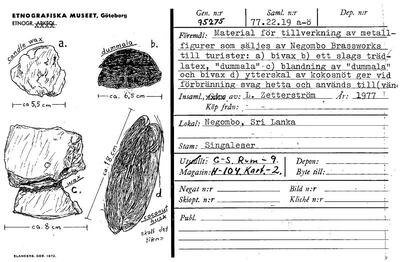 ETNOGRAFISKA MUSEET, Göteborg
ETNOGR.
candle wax
a.
ca 5,5 cm
dummala
b.
ca. 6,5 cm
wax
c.
ca. 8 cm
ca. 18 cm
d
coconut
husk
skall det
Gen.nr
95275
Saml.nr
77.22.19 a-ö
Dep.nr
Föremål: Material för tillverkning av metall-
figurer som säljes av Negombo Brassworks
till turister: a) bivax b) ett slags träd-
latex, "dummala" c) blandning av "dummala"
och bivax d) ytterskal av kokosnöt ger vid
förbränning svag hetta och används till(vänd
Insaml., av: L. Zetterström År: 1977
Köp från:
Lokal: Negombo, Sri Lanka
Stam: Singaleser
Utställt: G-S. Rum-9.
Depon:
Magasin: H-104 Kart-2.
Byte till:
Negat nr:
Bild nr:
Skiopt. nr:
Kliché nr:
Publ.
ELANDERS, GBG 1972.